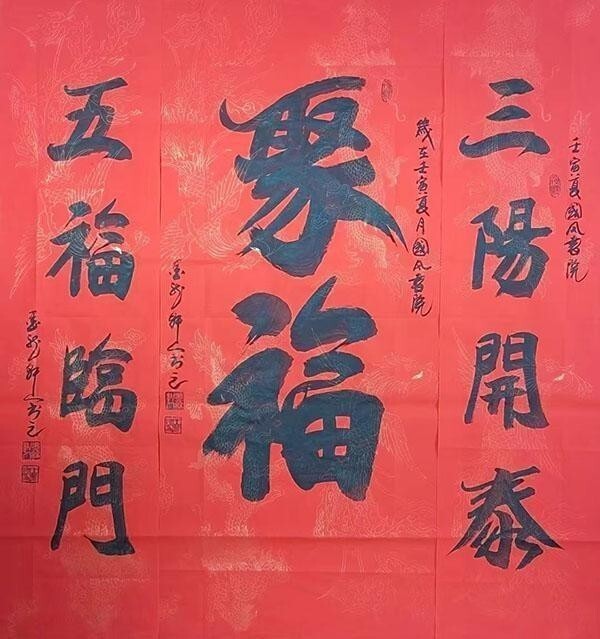 壬寅夏國风書院
三陽開泰
歲在壬寅夏月國风書院
聚福
五福臨門